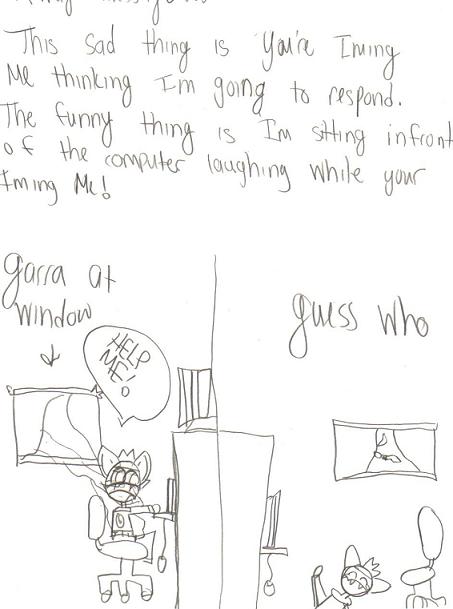 This sad thing is You're Iming
Me thinking Im going to respond.
The funny thing is Im sitting infront
of the computer laughing while your
Iming Me!
garra at
window
HELP
ME!
guess who